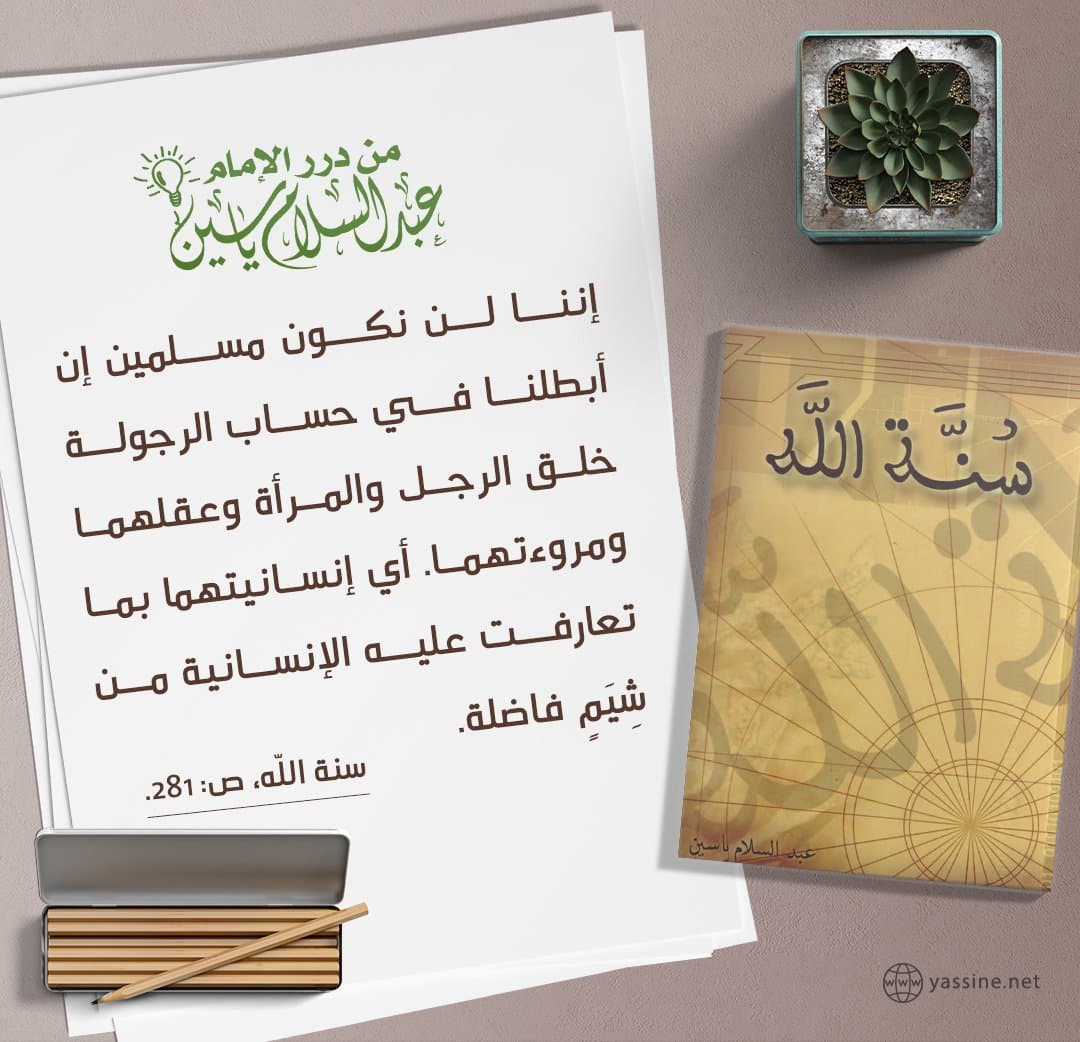 من درر الإمام
عبد السلام ياسين
إننا لن نكون مسلمين إن
أبطلنا في حساب الرجولة
خلق الرجل والمرأة وعقلهما
ومروءتهما. أي إنسانيتهما بما
تعارفت عليه الإنسانية من
شِيَمٍ فاضلة.
سنة الله، ص: 281.
سُنَّة اللَّه
عبد السلام ياسين
www yassine.net